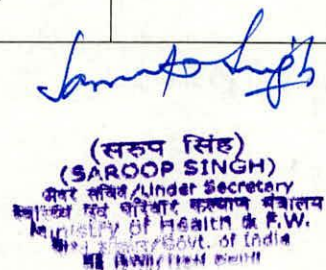 (सरुप सिंह)
(SAROOP SINGH)
अवर सचिव/Under Secretary
स्वास्थ्य एवं परिवार कल्याण मंत्रालय
Ministry of Health & F.W.
Govt. of India